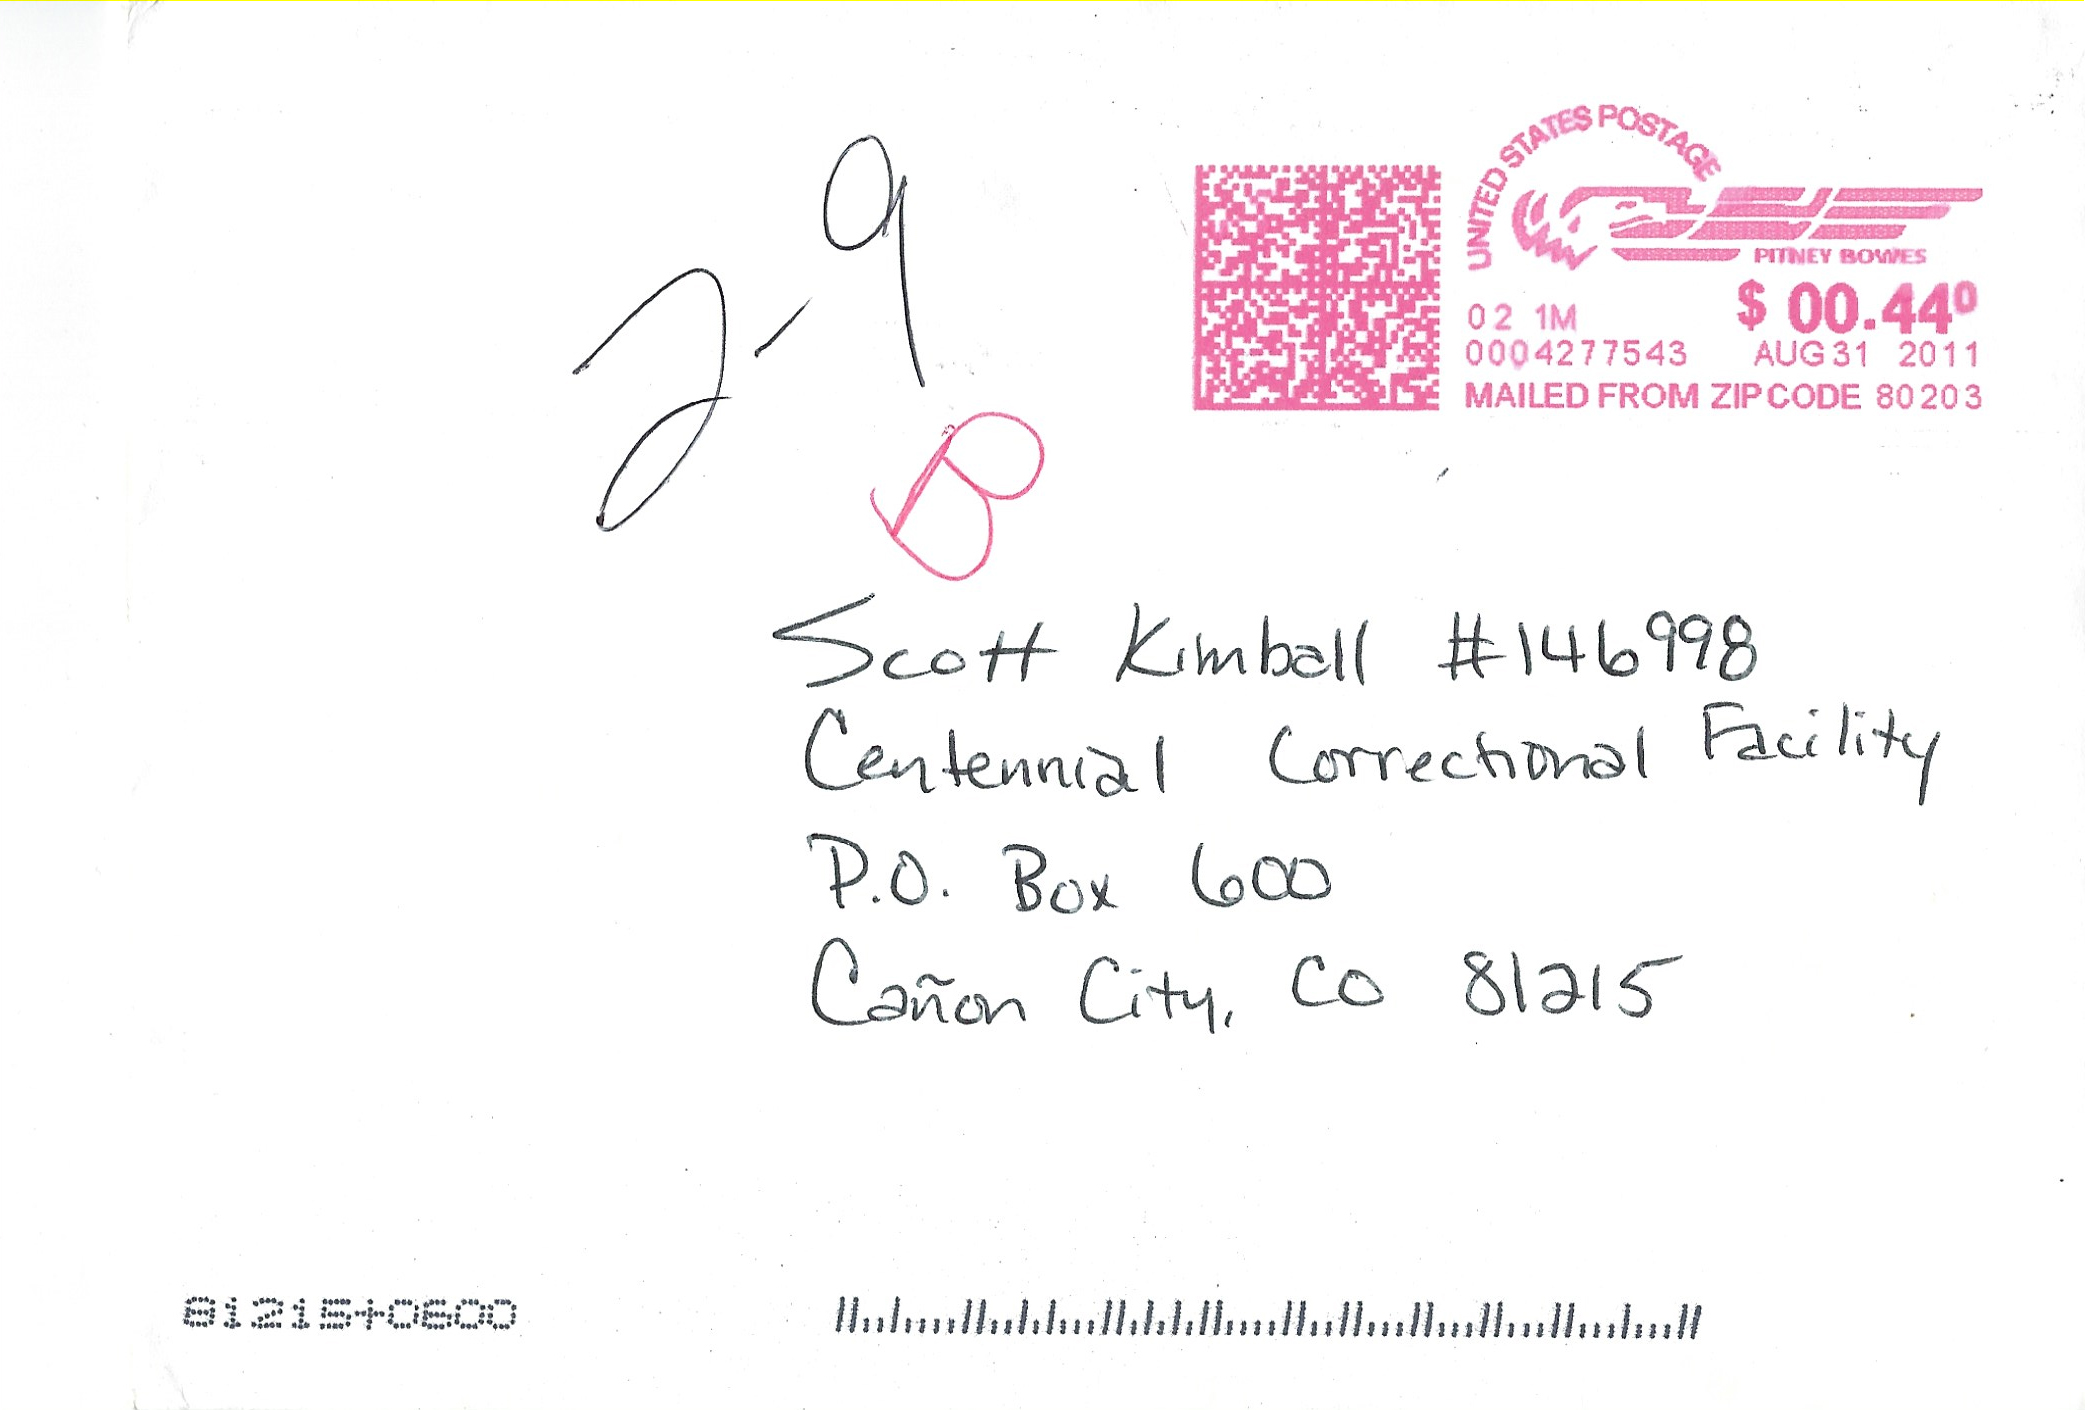 2-9
B
UNITED STATES POSTAGE
PITNEY BOWES
02 1M
$ 00.44⁰
0004277543 AUG 31 2011
MAILED FROM ZIP CODE 80203
Scott Kimball #146998
Centennial Correctional Facility
P.O. Box 600
Cañon City, CO 81215
81215+0600